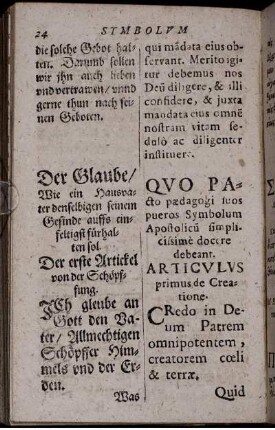 24 SYMBOLVM
die solche Gebot hal-
ten. Darumb sollen
wir jhn auch lieben
vnd vertrawen/ vnnd
gerne thun nach sei-
nen Geboten.
Der Glaube/
Wie ein Hausva-
ter denselbigen seinem
Gesinde auffs ein-
feltigst fürhal-
ten sol.
Der erste Artickel
von der Schöpf-
fung.
ICh gleube an
Gott den Va-
ter/ Allmechtigen
Schöpffer Him-
mels vnd der Er-
den.
Was
qui mãdata eius ob-
servant. Merito igi-
tur debemus nos
Deũ diligere, & illi
confidere, & juxta
mandata eius omnẽ
nostram vitam se-
dulò ac diligenter
instituere.
QVO PA-
cto pædagogi suos
pueros Symbolum
Apostolicũ simpli-
cissimè docere
debeant.
ARTICVLVS
primus de Crea-
tione.
CRedo in De-
um Patrem
omnipotentem,
creatorem cœli
& terræ.
Quid